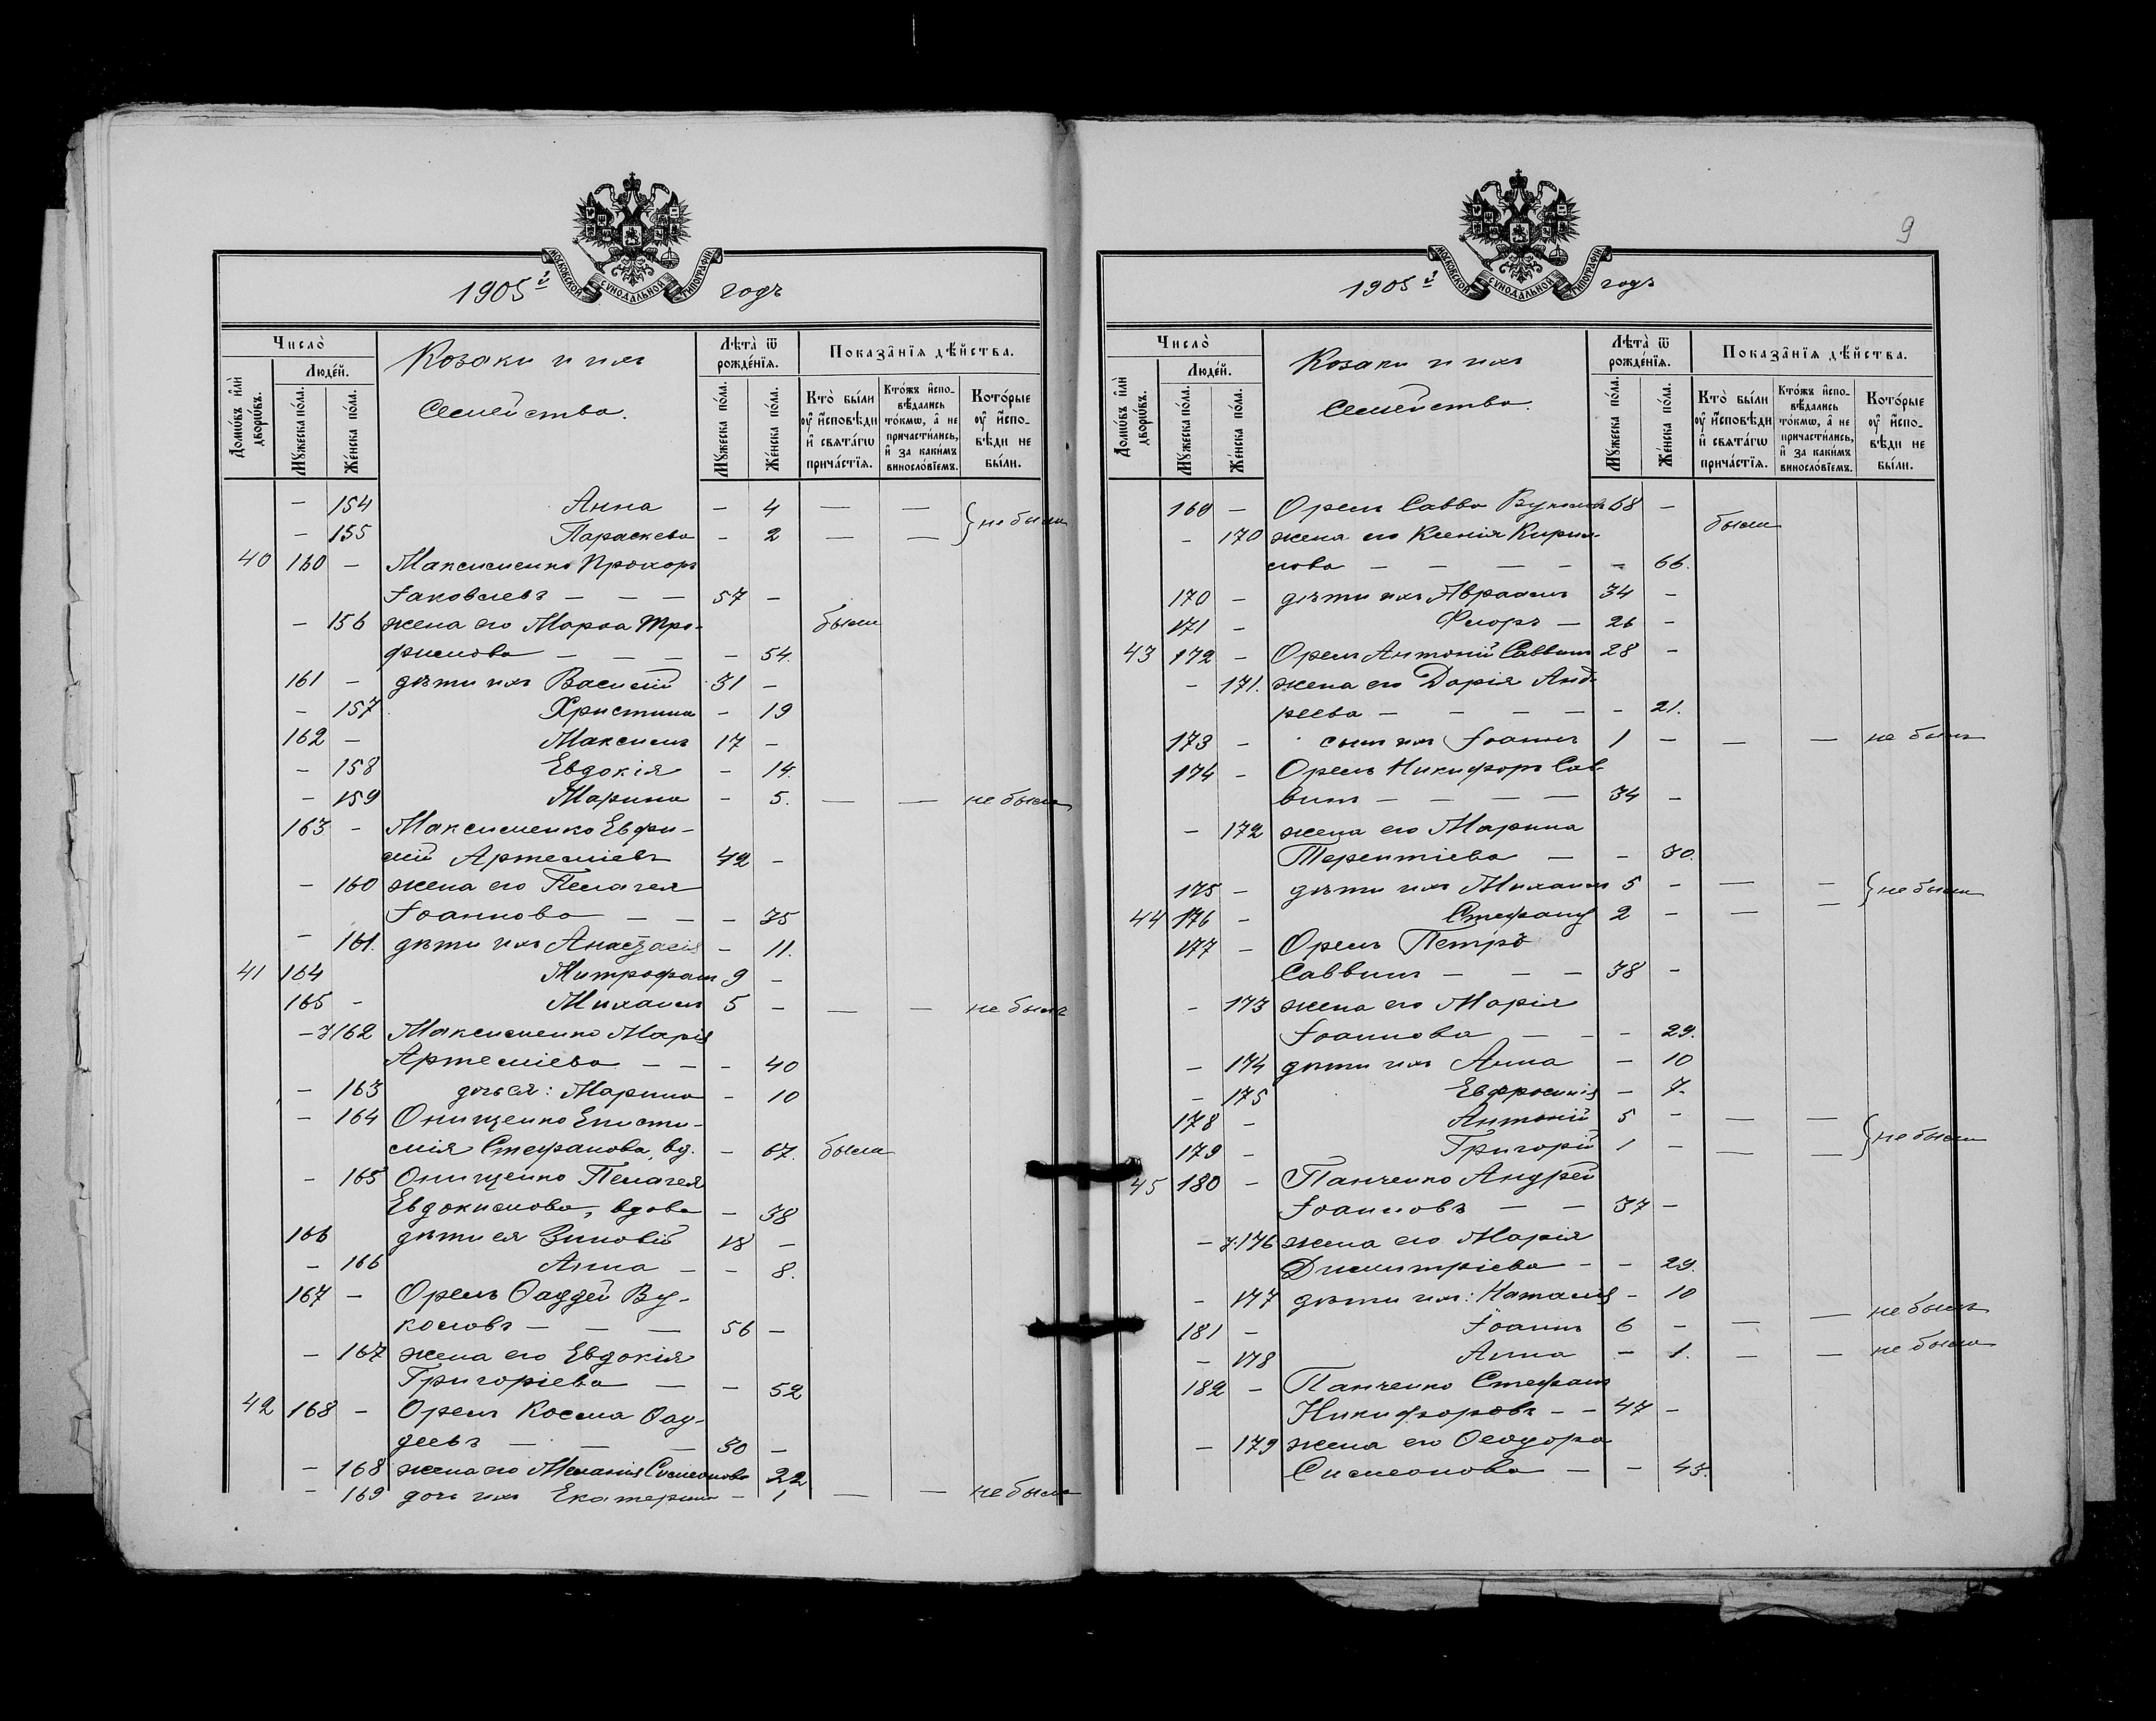 МОСКОВСКОЙ СУНОДАЛЬНОЙ ТИПОГРАФІИ
1905й годъ
Число̀
Козаки и ихъ
Лѣта̀ ѿ рожде́нїѧ.
Показа̑нїѧ дѣ́йства.
Домѡ́въ и҆лѝ дворѡ́въ.
Люде́й.
Мꙋ́жеска по́ла.
Же́нска по́ла.
Семейства.
Мꙋ́жеска по́ла.
Же́нска по́ла.
Кто̀ бы́ли ᲂу҆ и҆сповѣ́ди и҆ свѧта́гѡ прича́стїѧ.
Кто́жъ и҆спо-вѣ́дались то́кмѡ, а҆ не причасти́лись, и҆ за каки́мъ винослов́їемъ.
Кото́рые ᲂу҆ и҆спо-вѣ́ди не бы́ли.
— 154 Анна — 4 — — } не были
— 155 Параскева — 2 — —
40 160 — Максименко Прохоръ
Іаковлевъ — — — 57 —
— 156 жена его Марѳа Тро- были
фимова — — — — 54.
161 — дѣти ихъ Василій 31 —
— 157 Христина — 19
162 — Максимъ 17 —
— 158 Евдокія — 14.
— 159 Марина — 5. — — не была
163 — Максименко Евфи-
мій Артеміевъ 42 —
— 160 жена его Пелагея
Іоаннова — — — 35
— 161. дѣти ихъ Анастасія — 11.
41 164 Митрофанъ 9 —
165 — Михаилъ 5 — — — не былъ
— 162 Максименко Марія
Артеміева — — — 40
— 163 дочь ея: Марина — 10
— 164 Онищенко Еписти-
мія Стефанова, вд. — 67. была
— 165 Онищенко Пелагея
Евдокимова, вдова — 38
166 дѣти ея Зиновій 18 —
— 166 Анна — — 8.
167 — Орелъ Ѳаддей Ву-
коловъ — — — 56 —
— 167 жена его Евдокія
Григоріева — — 52
42 168 — Орелъ Косма Ѳад-
деевъ — — — 30 —
— 168 жена его Меланія Симеонова 22
— 169 дочь ихъ Екатерина — 1 — — не была
9
МОСКОВСКОЙ СУНОДАЛЬНОЙ ТИПОГРАФІИ
1905й годъ
Число̀
Козаки и ихъ
Лѣта̀ ѿ рожде́нїѧ.
Показа̑нїѧ дѣ́йства.
Домѡ́въ и҆лѝ дворѡ́въ.
Люде́й.
Мꙋ́жеска по́ла.
Же́нска по́ла.
Семейства.
Мꙋ́жеска по́ла.
Же́нска по́ла.
Кто̀ бы́ли ᲂу҆ и҆сповѣ́ди и҆ свѧта́гѡ прича́стїѧ.
Кто́жъ и҆спо-вѣ́дались то́кмѡ, а҆ не причасти́лись, и҆ за каки́мъ винослов́їемъ.
Кото́рые ᲂу҆ и҆спо-вѣ́ди не бы́ли.
169 — Орелъ Савва Вуколовъ 68 —
— 170 жена его Ксенія Кирил- были
лова — — — — — 66.
170 — дѣти ихъ Авраамъ 34 —
171 — Флоръ — 26 —
43 172 — Орелъ Антоній Саввинъ 28 —
— 171. жена его Дарія Анд-
реева — — — — — 21.
173 — сынъ ихъ Іоаннъ 1 — — — не былъ
174 — Орелъ Никифоръ Сав-
винъ — — — — 34 —
— 172 жена его Марина
Терентіева — — 30.
175 — дѣти ихъ Михаилъ 5 — — — } не были
44 176 — Стефанъ 2 — — —
177 — Орелъ Петръ
Саввинъ — — — 38 —
— 173 жена его Марія
Іоаннова — — — 29.
— 174 дѣти ихъ Анна — 10
— 175 Евфросинія — 7.
178 — Антоній 5 — — —
179 — Григорій 1 — — — } не были
45 180 — Панченко Андрей
Іоанновъ — — 37 —
— 176 жена его Марія
Димитріева — — 29.
— 177 дѣти ихъ: Наталія — 10
181 — Іоаннъ 6 — — — не былъ
— 178 Анна — 1. — — не была
182 — Панченко Стефанъ
Никифоровъ — — 47 —
— 179 жена его Ѳеодора
Симеонова — — 45.